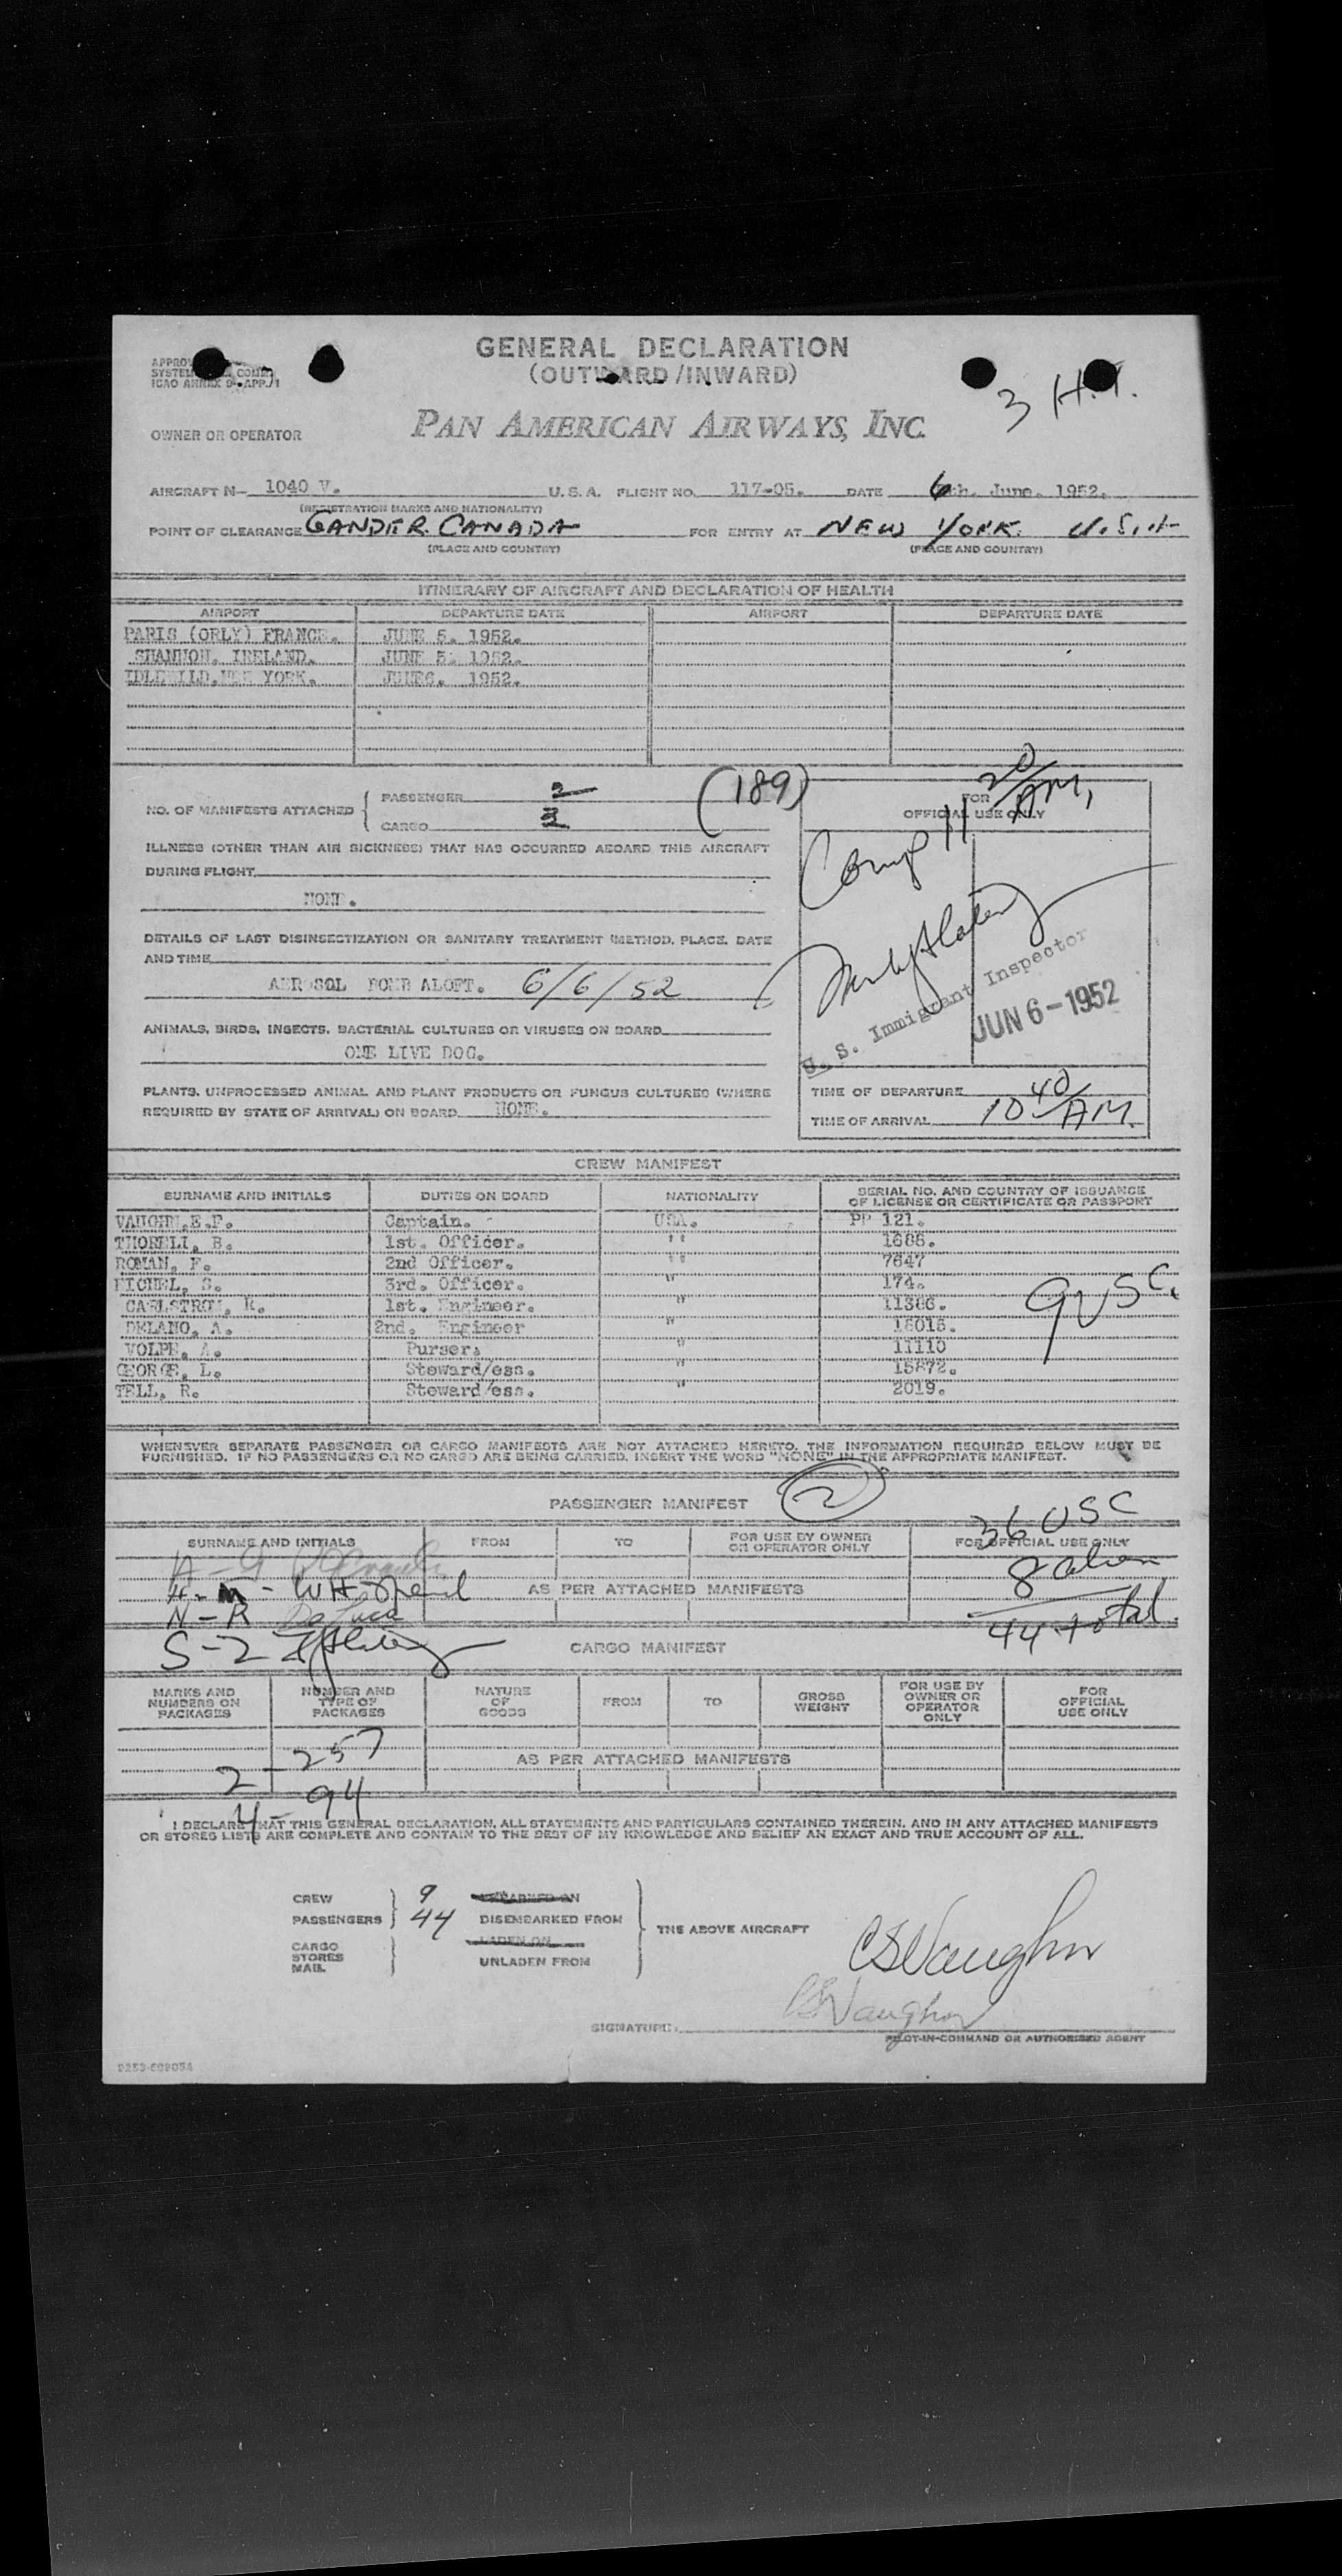 GENERAL DECLARATION
(OUTWARD/INWARD)
3 H.
ICAO ANNEX 9-APP. 1
PAN AMERICAN AIRWAYS, INC.
OWNER OR OPERATOR
AIRCRAFT N- 1040 V. U.S.A. FLIGHT NO. 117-05. DATE 6th. June. 1952.
(REGISTRATION MARKS AND NATIONALITY)
POINT OF CLEARANCE GANDER CANADA FOR ENTRY AT NEW YORK. U.S.A
(PLACE AND COUNTRY) (PLACE AND COUNTRY)
ITINERARY OF AIRCRAFT AND DECLARATION OF HEALTH
AIRPORT DEPARTURE DATE AIRPORT DEPARTURE DATE
PARIS (ORLY) FRANCE. JUNE 5. 1952.
SHANNON. IRELAND. JUNE 5. 1952.
IDLEWILD.NEW YORK. JUNE6. 1952.
(189)
NO. OF MANIFESTS ATTACHED { PASSENGER 2
CARGO 3
FOR
OFFICIAL USE ONLY
Comp 11 20/AM,
ILLNESS (OTHER THAN AIR SICKNESS) THAT HAS OCCURRED ABOARD THIS AIRCRAFT
DURING FLIGHT
NONE.
DETAILS OF LAST DISINSECTIZATION OR SANITARY TREATMENT (METHOD, PLACE, DATE
AND TIME
AEROSOL BOMB ALOFT. 6/6/52
U. S. Immigrant Inspector
JUN 6-1952
ANIMALS, BIRDS, INSECTS, BACTERIAL CULTURES OR VIRUSES ON BOARD
ONE LIVE DOG.
PLANTS, UNPROCESSED ANIMAL AND PLANT PRODUCTS OR FUNGUS CULTURES (WHERE
REQUIRED BY STATE OF ARRIVAL) ON BOARD NONE.
TIME OF DEPARTURE
TIME OF ARRIVAL 10 40/AM.
CREW MANIFEST
SURNAME AND INITIALS DUTIES ON BOARD NATIONALITY SERIAL NO. AND COUNTRY OF ISSUANCE
OF LICENSE OR CERTIFICATE OR PASSPORT
VAUGHN.E.F. Captain. USA. PP 121.
THORELI, B. 1st. Officer. " 1686.
ROMAN, F. 2nd Officer. " 7647
EICHEL, S. 3rd. Officer. " 174.
CARLSTROM, R. 1st. Engineer. " 11366.
DELANO, A. 2nd. Engineer " 16016.
VOLPE, A. Purser. " 11110
GEORGE, L. Steward/ess. " 15872.
TELL, R. Steward/ess. " 2019.
9 USC.
WHENEVER SEPARATE PASSENGER OR CARGO MANIFESTS ARE NOT ATTACHED HERETO, THE INFORMATION REQUIRED BELOW MUST BE
FURNISHED. IF NO PASSENGERS OR NO CARGO ARE BEING CARRIED, INSERT THE WORD "NONE" IN THE APPROPRIATE MANIFEST.
PASSENGER MANIFEST 2
SURNAME AND INITIALS FROM TO FOR USE BY OWNER
OR OPERATOR ONLY FOR OFFICIAL USE ONLY
36 USC
A-G
8 alien
H-M-
AS PER ATTACHED MANIFESTS
N-R DeLuca
44 total
S-Z
CARGO MANIFEST
MARKS AND
NUMBERS ON
PACKAGES
NUMBER AND
TYPE OF
PACKAGES
NATURE
OF
GOODS
FROM
TO
GROSS
WEIGHT
FOR USE BY
OWNER OR
OPERATOR
ONLY
FOR
OFFICIAL
USE ONLY
2 - 257
AS PER ATTACHED MANIFESTS
4 - 94
I DECLARE THAT THIS GENERAL DECLARATION, ALL STATEMENTS AND PARTICULARS CONTAINED THEREIN, AND IN ANY ATTACHED MANIFESTS
OR STORES LISTS ARE COMPLETE AND CONTAIN TO THE BEST OF MY KNOWLEDGE AND BELIEF AN EXACT AND TRUE ACCOUNT OF ALL.
CREW 9
PASSENGERS 44 DISEMBARKED FROM
THE ABOVE AIRCRAFT
CARGO LADEN ON
STORES
MAIL UNLADEN FROM
Vaughn
Vaughn
SIGNATURE:
PILOT-IN-COMMAND OR AUTHORISED AGENT